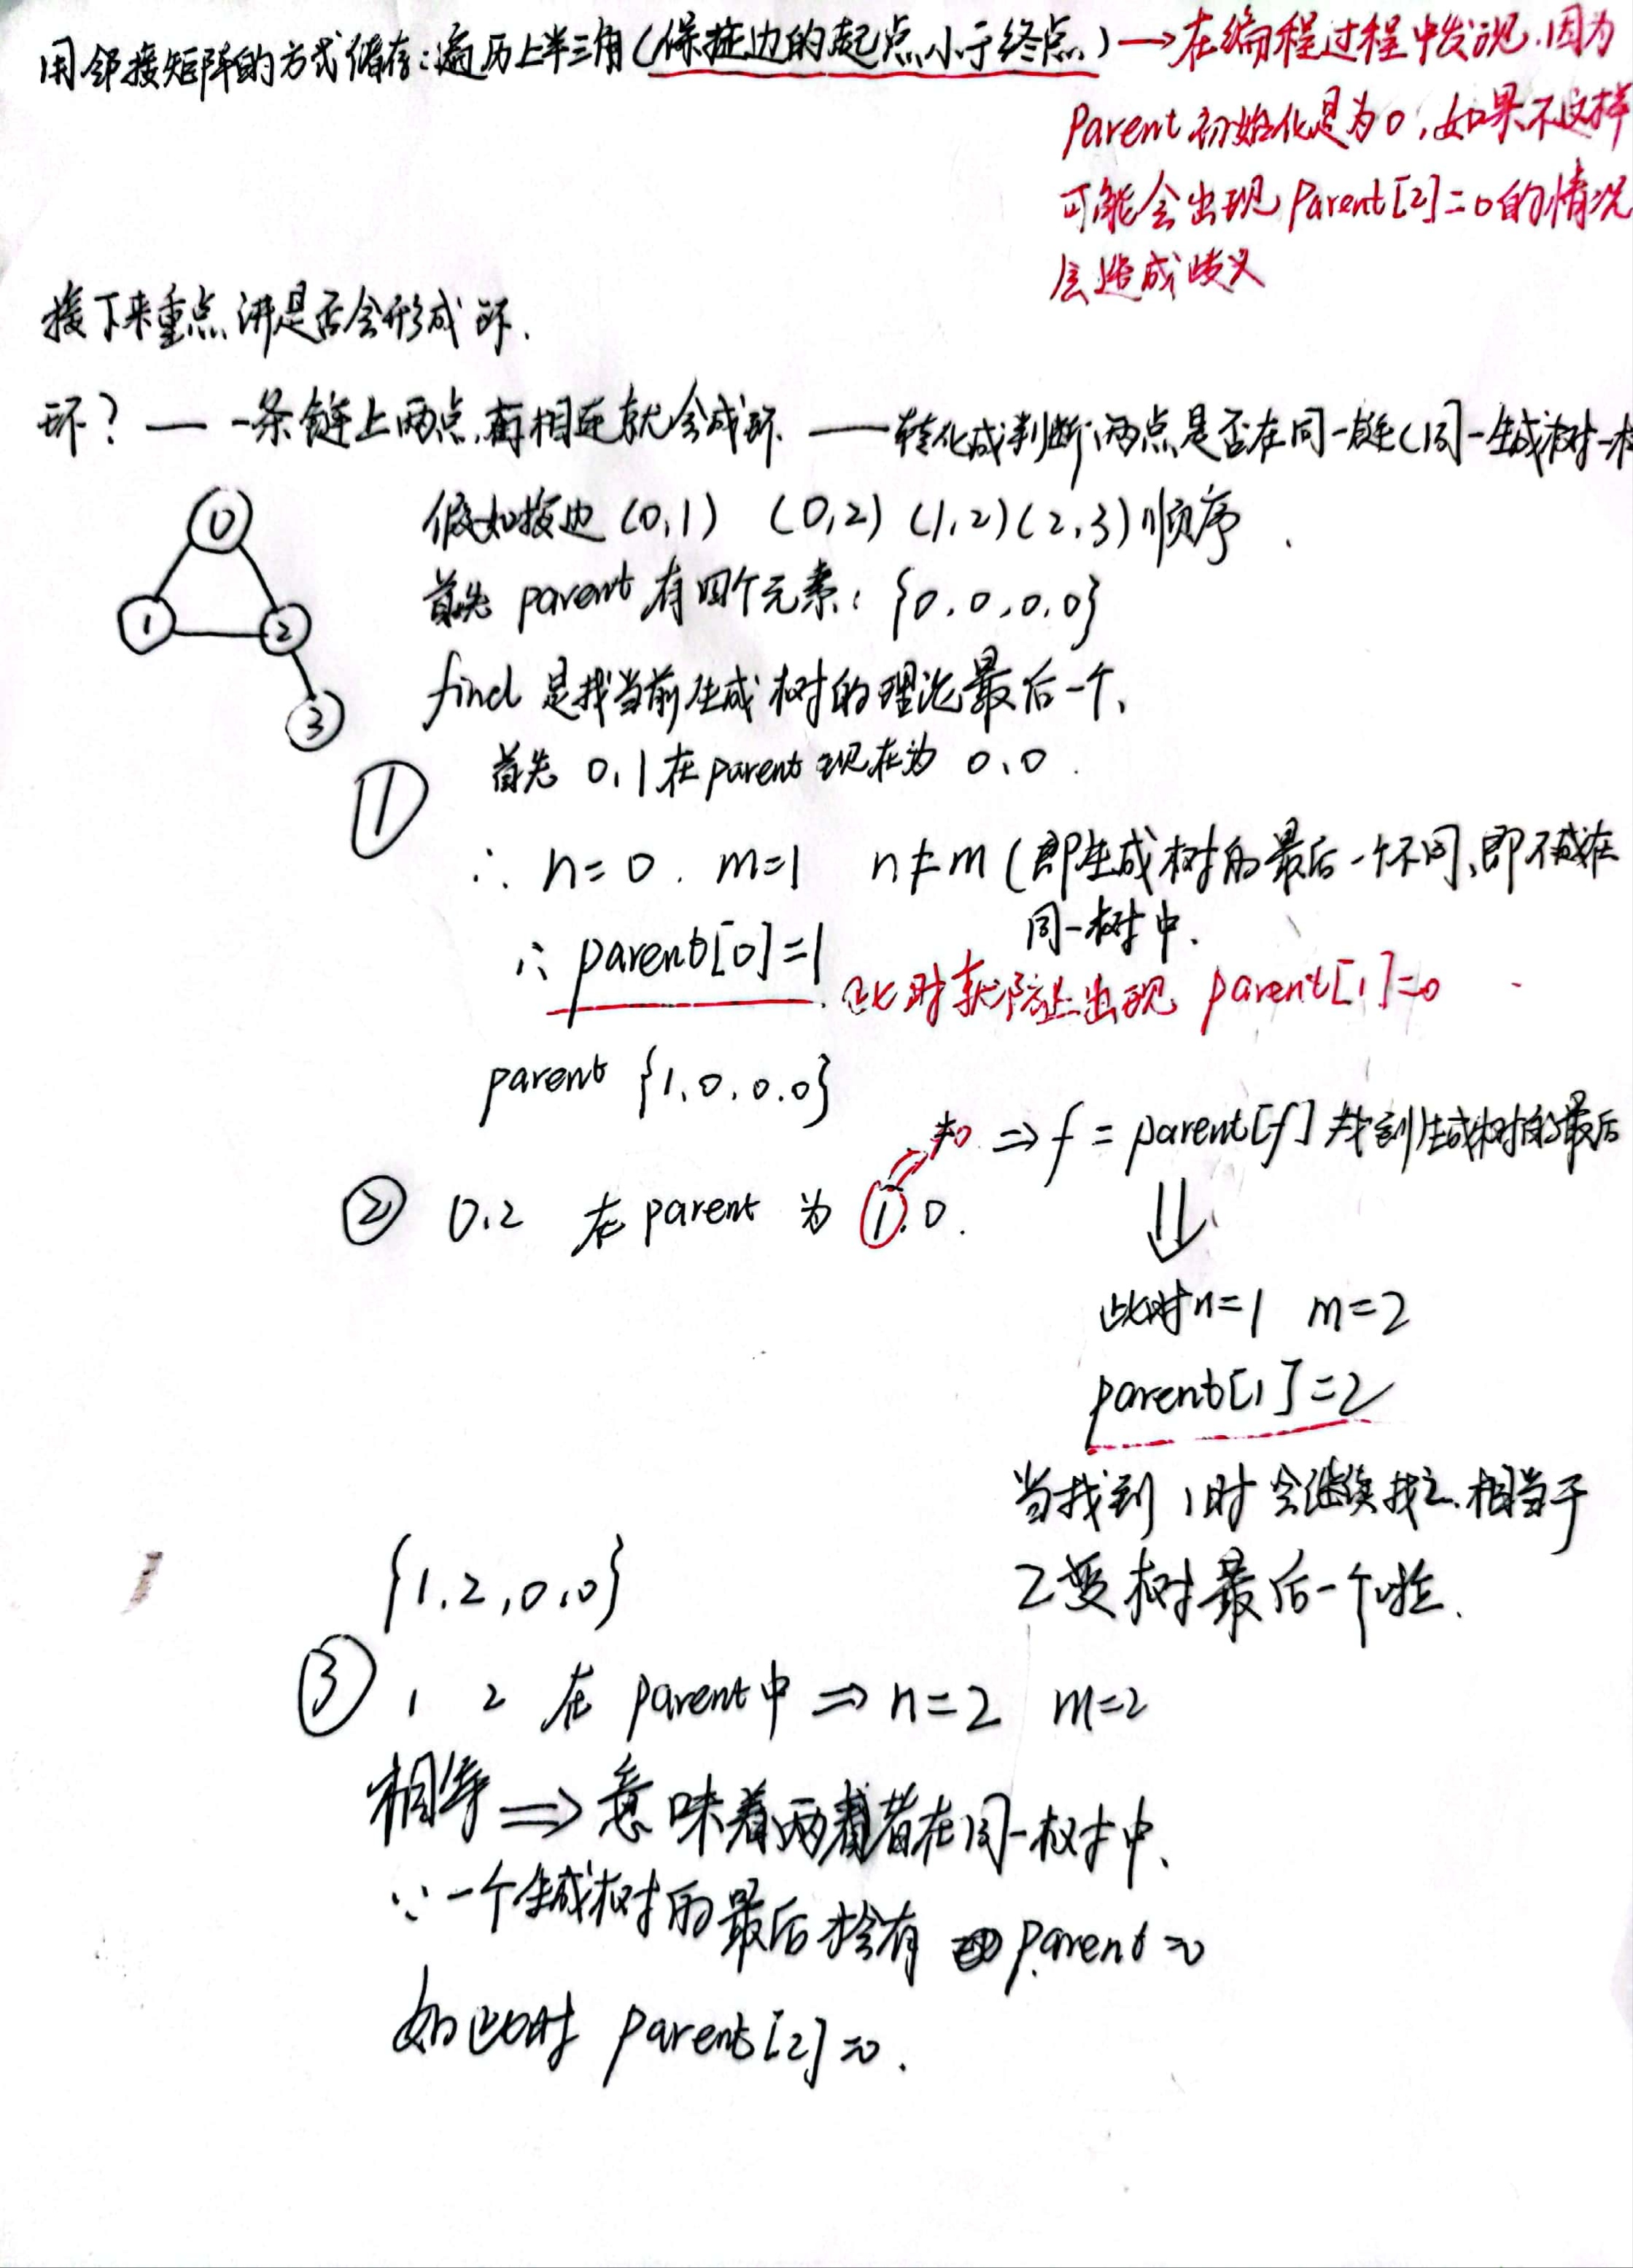 用邻接矩阵的方式储存：遍历上半三角（保证边的起点小于终点）→在编程过程中发现，因为
Parent初始化是为0，如果不这样
可能会出现Parent[2]=0的情况
会造成歧义
接下来重点讲是否会形成环.
环？— 一条链上两点，再相连就会成环. — 转化成判断两点是否在同一链（同一生成树一
0
1
2
3
假如按边（0,1）（0,2）（1,2）（2,3）顺序.
首先 parent 有四个元素：{0,0,0,0}
find 是找当前生成树的理论最后一个、
① 首先 0,1在parent现在为 0,0.
∴ n=0. m=1 n≠m（即生成树的最后一个不同、即不在
同一树中.
∴ parent[0]=1. 此时就防止出现 parent[1]=0
parent {1,0,0,0}
≠0 ⇒ f = parent[f] 找到生成树的最后
② 0,2 在 parent 为 1,0.
⇓
此时n=1 m=2
parent[1]=2
当找到1时会继续找2.相当于
2变树最后一个啦.
{1,2,0,0}
③ 1 2 在 parent中 ⇒ n=2 m=2
相等⇒意味着两者在同一树中、
∵一个生成树的最后才会有 parent=0
如此时 parent[2]=0.